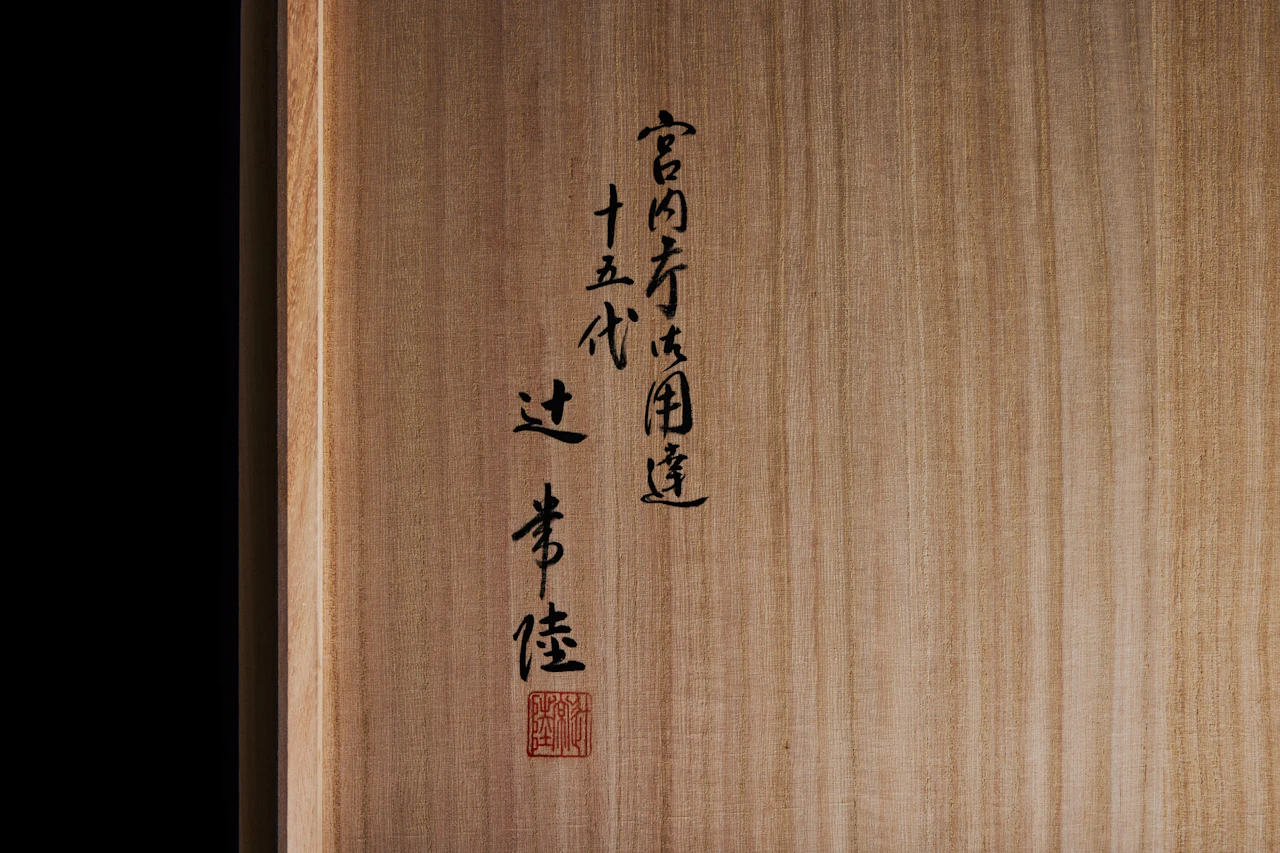 宮内庁御用達
十五代
辻 常陸
辻常陸